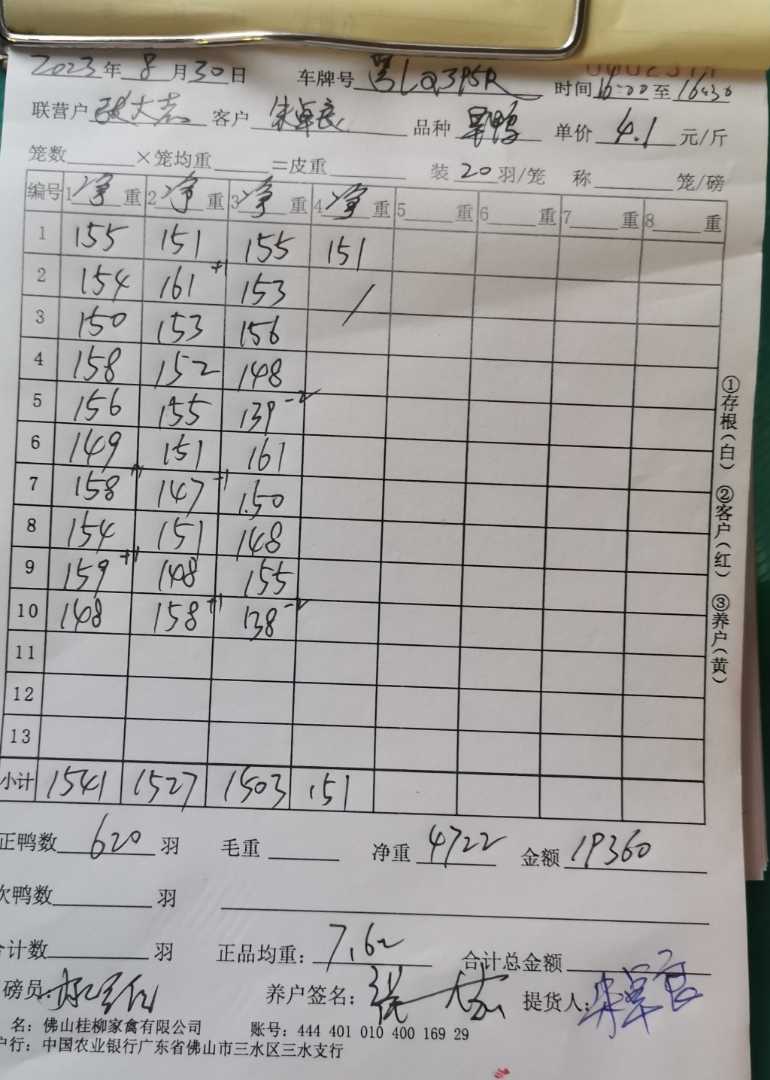 2023年8月30日 车牌号 黑L 395R 时间16:00至16:30
联营户 张大志 客户 宋卓良 品种 鸭 单价 4.1 元/斤
笼数 ×笼均重 =皮重 装20羽/笼 称 笼/磅
编号 1净重 2净重 3净重 4净重 5 重 6 重 7 重 8 重
1 155 151 155 151
2 154 161+1 153 /
3 150 153 156
4 158 152 148
5 156 155 139-2
6 149 151 161
7 158+1 147+1 150
8 154 151 148
9 159+1 148 155
10 148 158+1 138-2
11
12
13
小计 1541 1527 1503 151
正鸭数 620 羽 毛重 净重 4722 金额 19360
次鸭数 羽
合计数 羽 正品均重: 7.62 合计总金额
磅员: 养户签名: 张大志 提货人: 宋卓良
名: 佛山桂柳家禽有限公司 账号: 444 401 010 400 169 29
户行: 中国农业银行广东省佛山市三水区三水支行
①存根(白) ②客户(红) ③养户(黄)